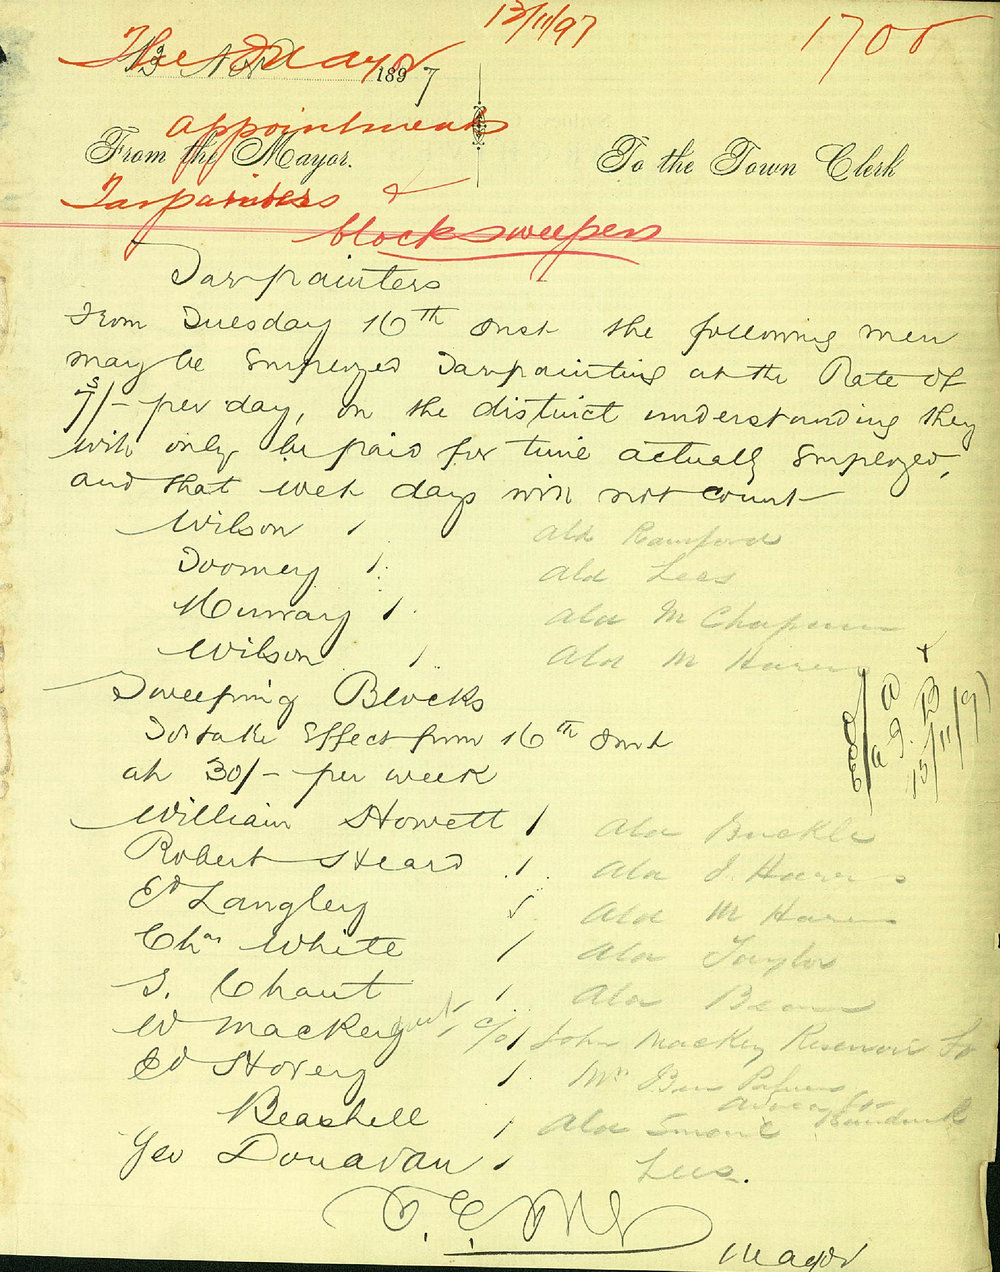 13/11/97
1705
The Mayor
13 Nov 1897
appointment
From the Mayor.
To the Town Clerk
Tarpainters &
blocksweepers
Tarpainters
From Tuesday 16th Inst the following men
may be Employed Tarpainting at the Rate of
7s/- per day, on the distinct understanding they
will only be paid for time actually Employed,
and that wet days will not count
Wilson / Ald
Toomey / Ald Lees
Murray / Ald M Chapman
Wilson / Ald M Harris
Sweeping Blocks
To take Effect from 16th Inst
at 30/- per week
15/11/97
William Howett / Ald Buckle
Robert Heard / Ald J. Harris
Ed Langley / Ald M Harris
Chas White / Ald Taylor
S. Chaut / Ald Bean
W Mackey c/o John Mackey Reservoir
Ed Hovey / Mr Ben Palmer
Beashell / Ald
Geo Donavan / Lees.
Mayor